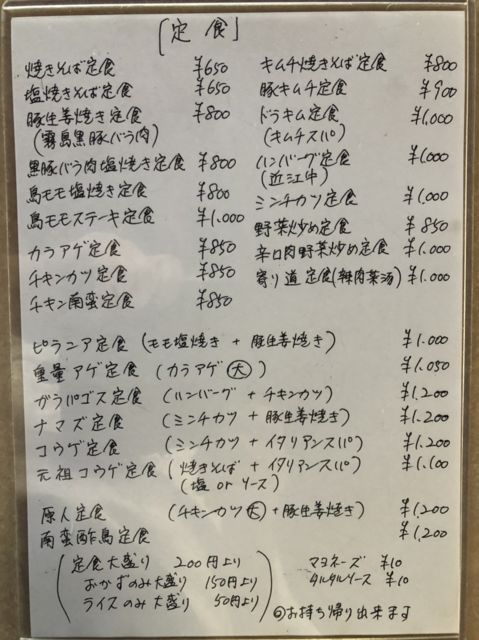 [定食]
焼きそば定食 ¥650
塩焼きそば定食 ¥650
豚生姜焼き定食 ¥800
(霧島黒豚バラ肉)
黒豚バラ肉塩焼き定食 ¥800
鳥モモ塩焼き定食 ¥800
鳥モモステーキ定食 ¥1.000
カラアゲ定食 ¥850
チキンカツ定食 ¥850
チキン南蛮定食 ¥850
キムチ焼きそば定食 ¥800
豚キムチ定食 ¥900
ドラキム定食 ¥1.000
(キムチスパ)
ハンバーグ定食 ¥1.000
(近江牛)
ミンチカツ定食 ¥1.000
野菜炒め定食 ¥850
辛口肉野菜炒め定食 ¥1.000
寄り道定食(辣肉菜湯) ¥1.000
ピラニア定食 (モモ塩焼き + 豚生姜焼き) ¥1.000
重量アゲ定食 (カラアゲ 大) ¥1.050
ガラパゴス定食 (ハンバーグ + チキンカツ) ¥1.200
ナマズ定食 (ミンチカツ + 豚生姜焼き) ¥1.200
コウゲ定食 (ミンチカツ + イタリアンスパ) ¥1.200
元祖コウゲ定食 (焼きそば + イタリアンスパ) ¥1.100
(塩 or ソース)
原人定食 (チキンカツ 大 + 豚生姜焼き) ¥1,200
南蛮酢鳥定食 ¥1,200
(定食大盛り 200円より
おかずのみ大盛り 150円より
ライスのみ大盛り 50円より)
マヨネーズ ¥10
タルタルソース ¥10
◎お持ち帰り出来ます